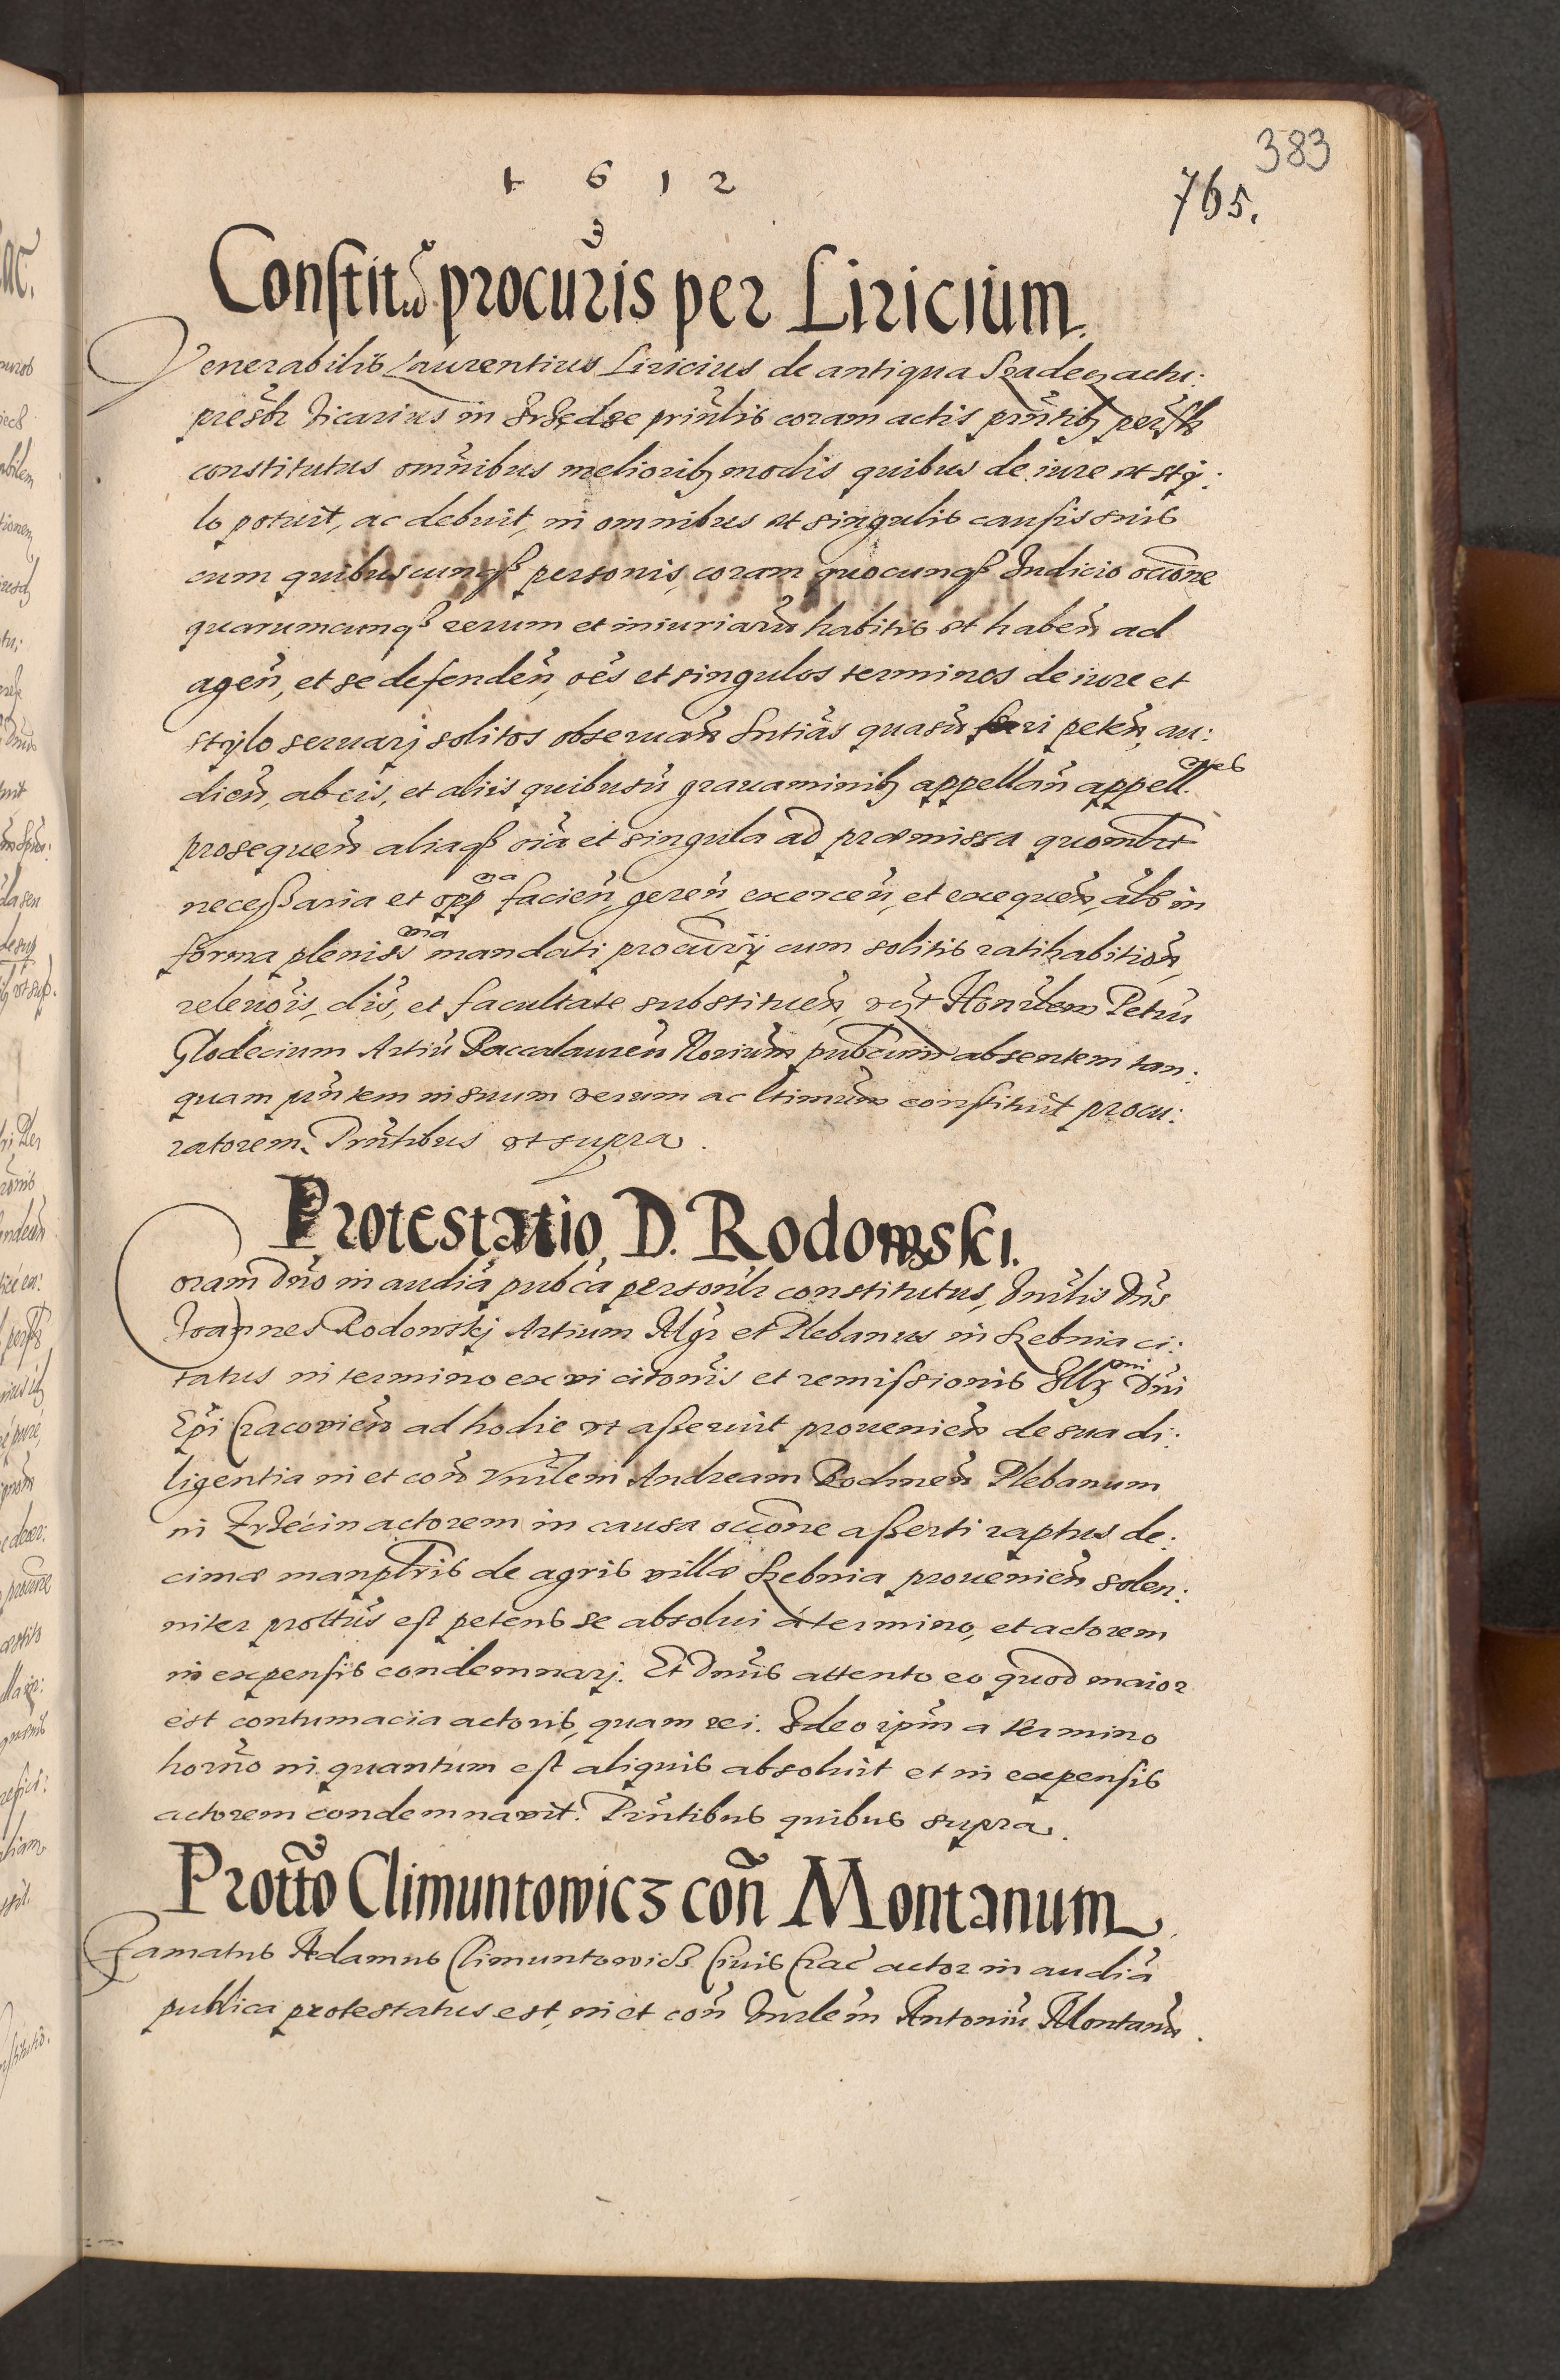 383
1 6 1 2
765.
Constit. procuris per Liricium.
Venerabilis Laurentius Liricius de antiqua Szadeg actu:
presbr Vicarius in prinlis coram actis prntib perslr
constitutus omnibus meliorib modis quibus de iure et sty:
lo potuit, ac debuit, in omnibus et singulis causis suis
cum quibuscunq personis, coram quocunq Judicio occone
quarumcunq rerum et iniuriaru habitis et haben ad
agen, et se defenden, oes et singulos terminos de iure et
stylo seruarj solitos obseruan Sntias quasu ferri peten, au:
dien, ab eis, et aliis quibusu grauaminib appellan appell nes
prosequen aliaq oia et singula ad præmissa quomlbt
necessaria et opp na facien, geren, exercen, et exequen, als in
forma pleniss ma mandati procurij cum solitis ratihabition,
releuois, dis, et facultate substituen, Honrlem Petru
Glodecium Artiu Baccalauren Norium pubcum absentem tan:
quam pntem in suum verum ac ltimum constituit procu:
ratorem. Prntibus vt supra.
Protestatio D. Rodowski.
Coram Dno in audia pubca personlr constitutus, Vnrlis Dns
Joannes Rodowskj Artium Mgr et Plebanus in Szebnia ci:
tatus in termino ex vi citonis et remissionis Illr mi Dni
Epi Cracovien ad hodie vt asseruit prouenien de sua di:
ligentia in et con Vnrlem Andream Bochnen Plebanum
in Zrdecin actorem in causa occone asserti raptus de:
cimæ manplris de agris villæ Szebnia prouenien solen:
niter prottus est petens se absolui à termino, et actorem
in expensis condemnarj. Et Dnus attento eo quod maior
est contumacia actoris, quam rei. Ideo ipm a termino
horno in quantum est aliquis absoluit et in expensis
actorem condemnavit. Prntibus quibus supra.
Protto Climuntowicz con Montanum
Famatus Adamus Climuntowicz Ciuis Crac actor in audia
publica protestatus est, in et con Vnrlem Antoniu Montanu.